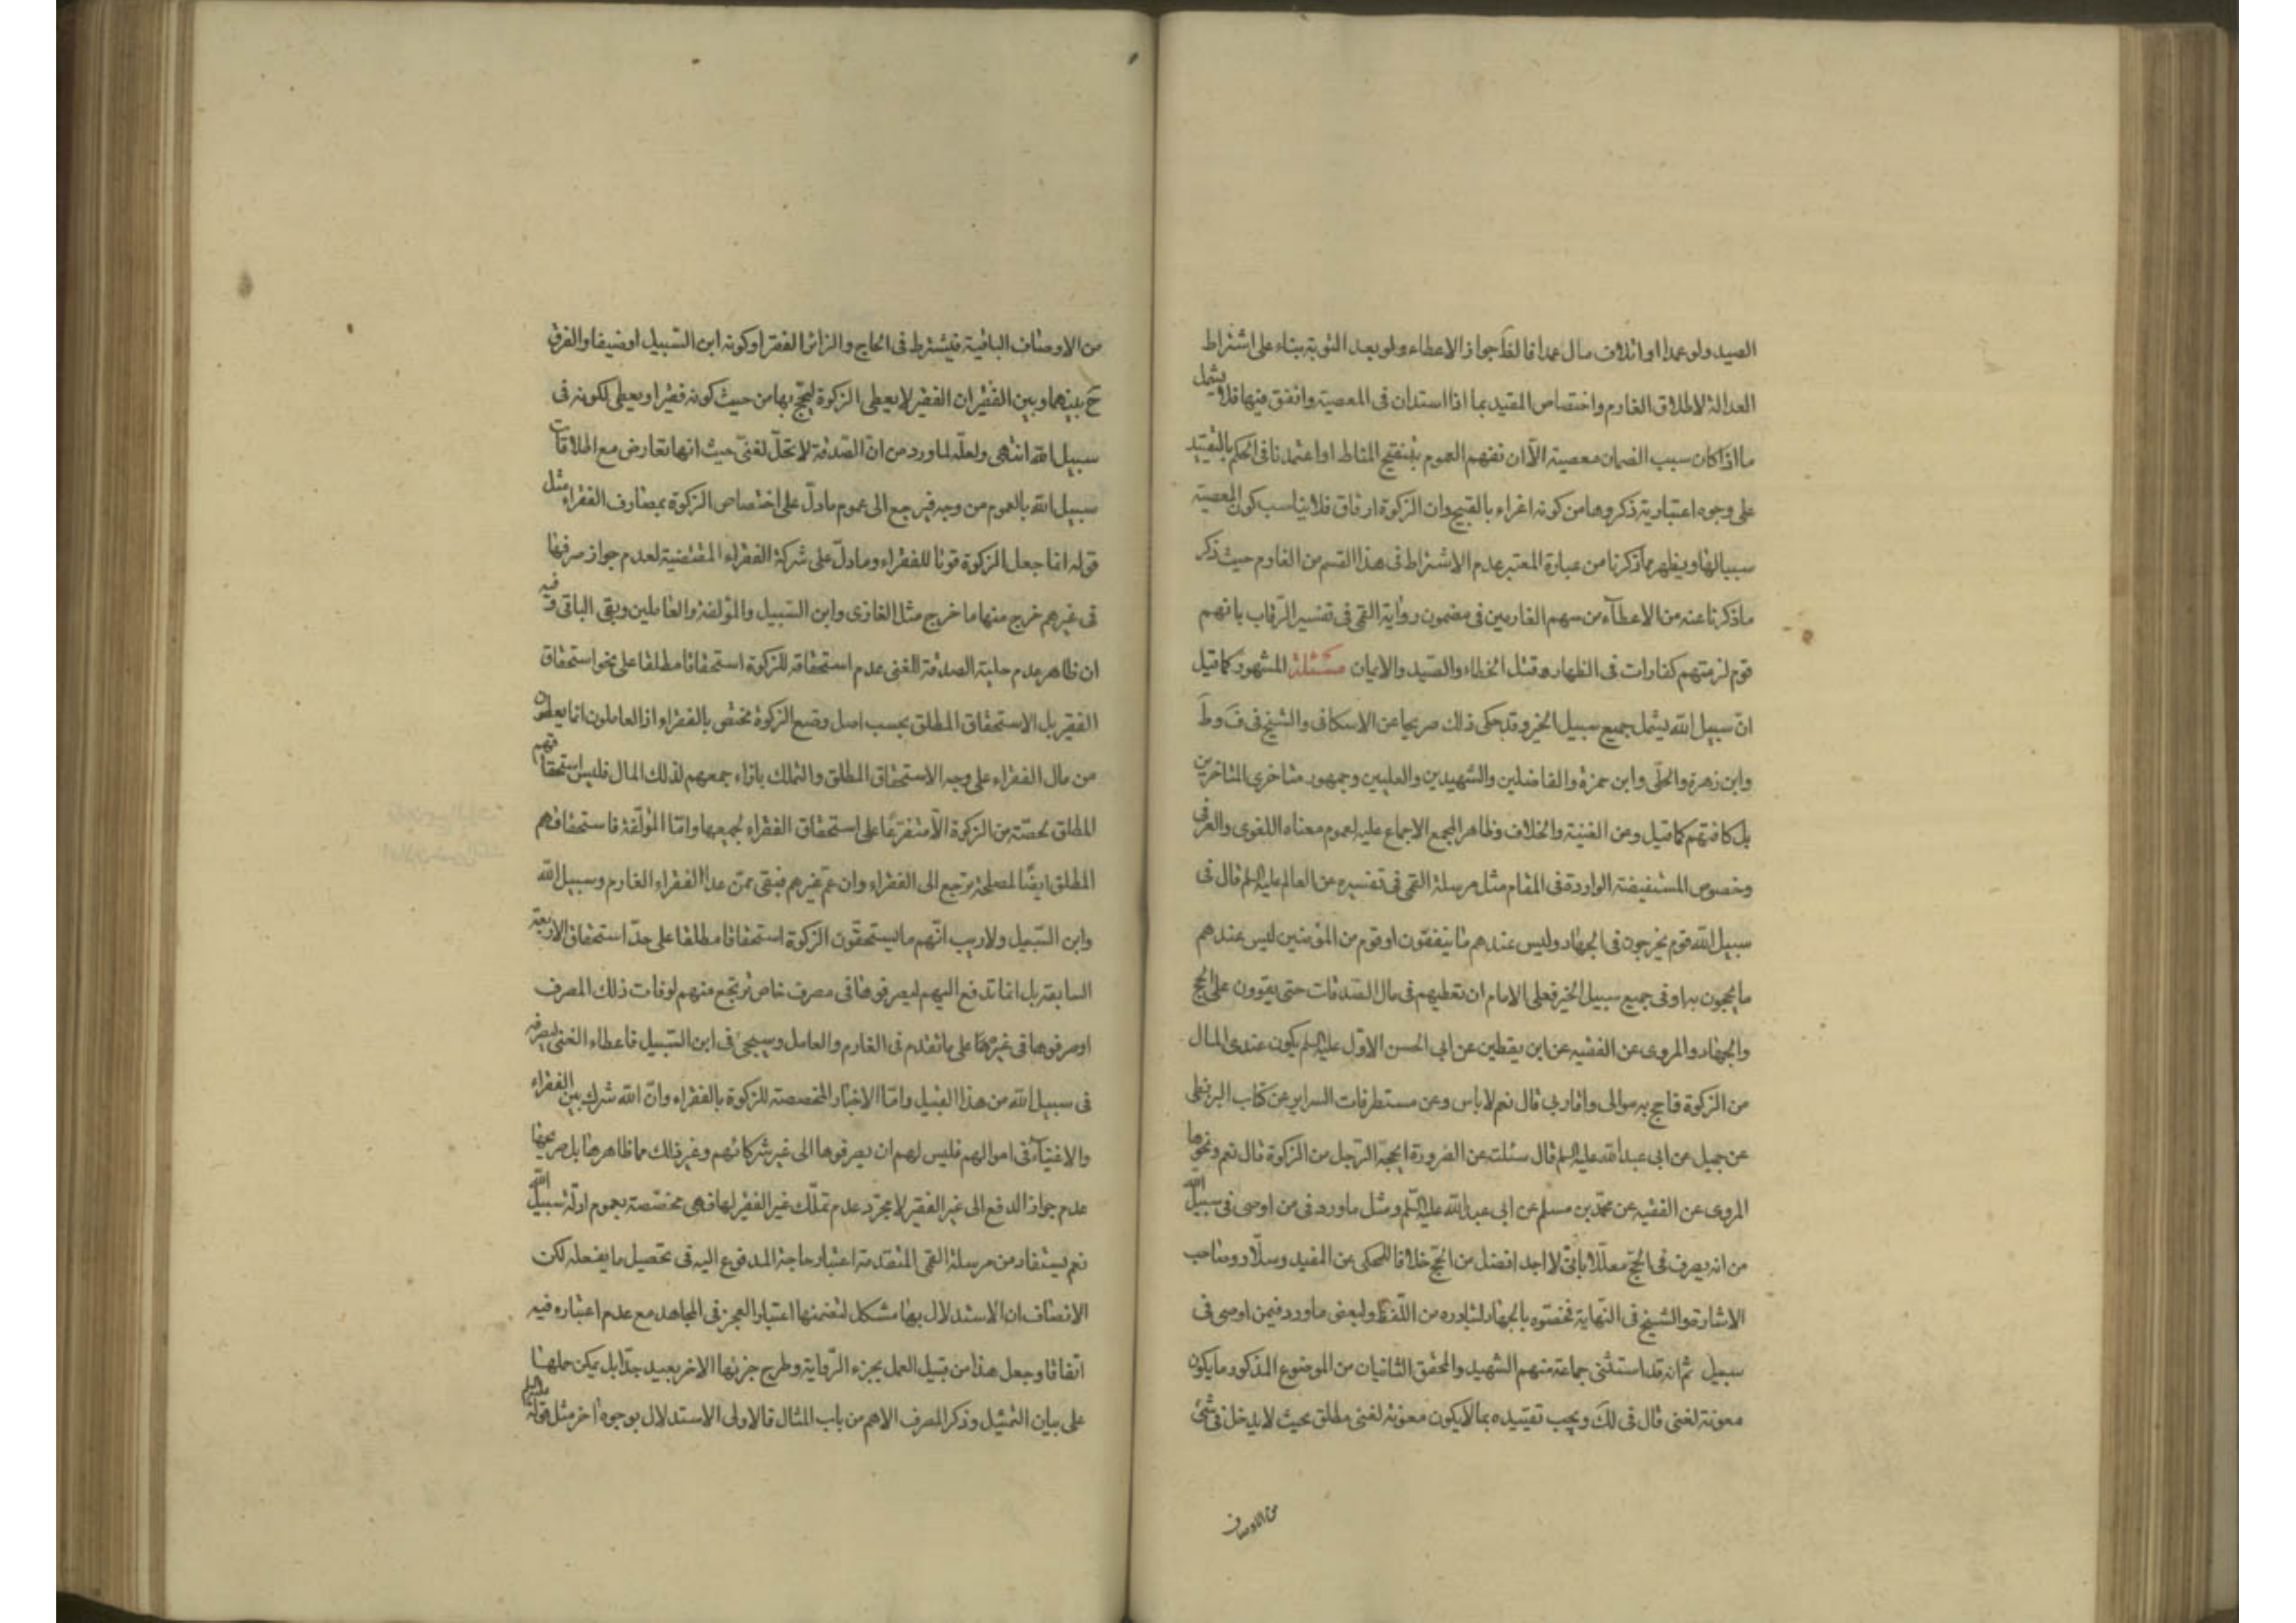 الصيد ولو عمدا او اتلاف مال عمدا فالفا جواز الاعطاء ولو بعد التوبة بناء على اشتراط
العدالة لاطلاق الغارم واختصاص المقيد بما اذا استدان فى المعصية وانفق فيها فلا يشمل
ما اذا كان سبب الضمان معصية الّا ان نفهم العموم بتنقيح المناط او اعتمدنا فى الحكم بالتقييد
على وجوه اعتبارية ذكروها من كونه اغراء بالقبيح وان الزكوة ارفاق فلا يناسب كون المعصية
سببا لها ويظهر مما ذكرنا من عبارة المعتبر عدم الاشتراط فى هذا القسم من الغارم حيث ذكر
ما ذكرنا عنه من الاعطآء من سهم الغارمين فى مضمون رواية القمى فى تفسير الرّقاب بانهم
قوم لزمتهم كفارات فى الظهار وقتل الخطاء والصّيد والايمان مسئلة المشهور كما قيل
انّ سبيل الله يشمل جميع سبيل الخير وقد حكى ذلك صريحا عن الاسكافى والشيخ فى فَ وطَ
وابن زهرة والحلّى وابن حمزة والفاضلين والشهيدين والعليين وجمهور متاخرى المتاخرين
بل كافتهم كما قيل وعن الغنية والخلاف وظاهر المجمع الاجماع عليه لعموم معناه اللغوى والعرفى
وخصوص المستفيضة الواردة فى المقام مثل مرسلة القمى فى تفسيره عن العالم عليه السلم قال فى
سبيل الله قوم يخرجون فى الجهاد وليس عندهم ما يتفقون او قوم من المؤمنين ليس عندهم
ما يحجون به او فى جميع سبيل الخير فعلى الامام ان نعطيهم فى مال الصّدقات حتى يقوون على الحج
والجهاد والمروى عن الفقيه عن ابن يقطين عن ابى الحسن الاوّل عليه السلم يكون عندى المال
من الزكوة فاحج به موالى واقاربى قال نعم لا باس وعن مستطرفات السراير عن كتاب البزنطى
عن جميل عن ابى عبد الله عليه السلم قال سئلت عن الضرورة ايحجّه الرّجل من الزكوة قال نعم ونحوها
المروى عن الفقيه عن محمّد بن مسلم عن ابى عبد الله عليه السّلم ومثل ما ورد فى من اوصى فى سبيل الله
من انه يصرف فى الحجّ معلّلا بانّى لا اجد افضل من الحجّ خلافا للمحكى عن المفيد وسلّار وصاحب
الاشارة والشيخ فى النّهاية فخصّوه بالجهاد لتبادره من اللّفظ ولبعض ما ورد فيمن اوصى فى
سبيل ثم انه قد استثنى جماعة منهم الشهيد والمحقق الثانيان من الموضوع المذكور ما يكون
معونة لغنى قال فى لك ويجب تقييده بما لا يكون معونة لغنى مطلق بحيث لا يدخل فى شئ
من الاوصاف
من الاوصاف الباقية فيشترط فى الحاج والزائر الفقر او كونه ابن السّبيل او ضيفا والفرق
حَ بينهما وبين الفقير ان الفقير لا يعطى الزكوة ليحجّ بها من حيث كونه فقيرا ويعطى لكونه فى
سبيل الله انتهى ولعلّه لما ورد من انّ الصّدقة لا تحلّ لغنىّ حيث انها تعارض مع اطلاقات
سبيل الله بالعموم من وجه فيرجع الى عموم ما دلّ على اختصاص الزكوة بمصارف الفقراء مثل
قوله انما جعل الزكوة قوتا للفقراء وما دلّ على شركة الفقراء المقتضية لعدم جواز صرفها
فى غيرهم خرج منها ما خرج مثل الغازى وابن السّبيل والمؤلفة والعاملين وبقى الباقى وفيه
ان ظاهر عدم حلية الصدقة للغنى عدم استحقاقه للزكوة استحقاقا مطلقا على نحو استحقاق
الفقير بل الاستحقاق المطلق بحسب اصل وضع الزكوة مختصّ بالفقراء اذ العاملون انما يعطون
من مال الفقراء على وجه الاستحقاق المطلق والتملك بازاء جمعهم لذلك المال فليس استحقاقهم
المطلق لحصّته من الزكوة الّا متفرّعا على استحقاق الفقراء لجميعها وامّا المؤلّفة فاستحقاقهم
المطلق ايضًا لمصلحة يرجع الى الفقراء وان عمّ غيرهم فيبقى ممّن عدا الفقراء الغارم وسبيل الله
وابن السّبيل ولا ريب انّهم ما يستحقّون الزكوة استحقاقا مطلقا على حدّ استحقاق الاربعة
السابقة بل انما تدفع اليهم ليصرفوها فى مصرف خاص يرتجع منهم لو فات ذلك المصرف
او صرفوها فى غيره كما على ما تقدم فى الغارم والعامل وسيجئ فى ابن السّبيل فاعطاء الغنى ليصرفه
فى سبيل الله من هذا القبيل وامّا الاخبار المخصصة للزكوة بالفقراء وانّ الله شرك بين الفقراء
والاغنياء فى اموالهم فليس لهم ان يصرفوها الى غير شركائهم وغير ذلك مما ظاهرها بل صريحها
عدم جواز الدفع الى غير الفقير لا مجرّد عدم تملّك غير الفقير لها فهى مخصّصة بعموم ادلّة سبيل الله
نعم يستفاد من مرسلة القمى المتقدمة اعتبار حاجة المدفوع اليه فى تحصيل ما يفعله لكن
الانصاف ان الاستدلال بها مشكل لتضمنها اعتبار العجز فى المجاهد مع عدم اعتباره فيه
اتفاقا وجعل هذا من قبيل العمل بجزء الرّواية وطرح جزئها الاخر بعيد جدّا بل يمكن حملها
على بيان التمثيل وذكر المصرف الاهم من باب المثال فالاولى الاستدلال بوجوه اخر مثل قوله عليه السلم